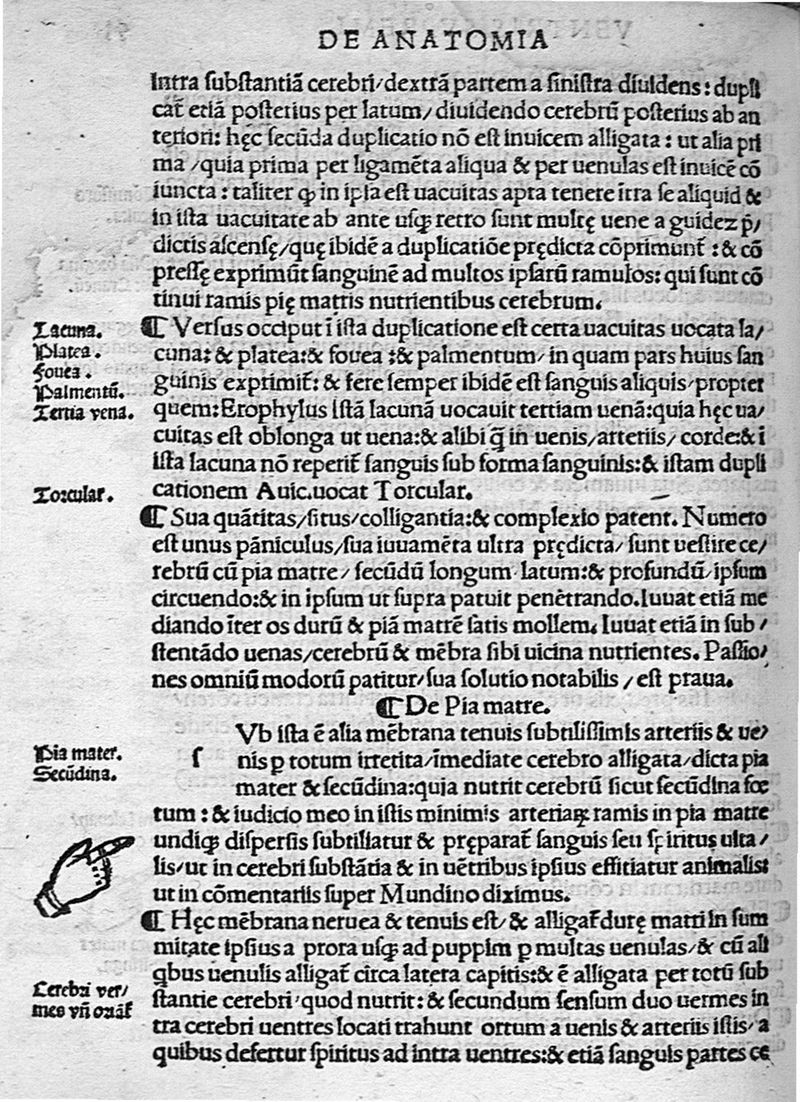 DE ANATOMIA
intra ſubſtantiã cerebri/dextrã partem a ſiniſtra diuidens: dupli
cat᷑ etiã poſterius per latum/diuidendo cerebrũ poſterius ab an
teriori: hęc ſecũda duplicatio nõ eſt inuicem alligata: ut alia pri
ma/quia prima per ligamẽta aliqua & per uenulas eſt inuicẽ cõ
iuncta: taliter ꝙ in ipſa eſt uacuitas apta tenere ĩtra ſe aliquid &
in iſta uacuitate ab ante uſqꝫ retro ſunt multę uene a guidez p̃/
dictis aſcenſę/quę ibidẽ a duplicatiõe prędicta cõprimunt᷑: & cõ
preſſę exprimũt ſanguinẽ ad multos ipſarũ ramulos: qui ſunt cõ
tinui ramis pię matris nutrientibus cerebrum.
Lacuna.
Platea.
fouea.
Palmentũ.
Tertia vena.
¶ Verſus occiput ĩ iſta duplicatione eſt certa uacuitas uocata la/
cuna: & platea: & fouea: & palmentum/in quam pars huius ſan
guinis exprimit᷑: & fere ſemper ibidẽ eſt ſanguis aliquis/propter
quem: Erophylus iſtã lacunã uocauit tertiam uenã: quia hęc ua/
cuitas eſt oblonga ut uena: & alibi q̃ in uenis/arteriis/corde: & ĩ
iſta lacuna nõ reperit᷑ ſanguis ſub forma ſanguinis: & iſtam dupli
Torcular.
cationem Auic. uocat Torcular.
¶ Sua quãtitas/ſitus/colligantia: & complexio patent. Numero
eſt unus pãniculus/ſua iuuamẽta ultra prędicta/ſunt ueſtire ce/
rebrũ cũ pia matre/ſecũdũ longum latum: & profundũ/ipſum
circuendo: & in ipſum ut ſupra patuit penẽtrando. Iuuat etiã me
diando ĩter os durũ & piã matrẽ ſatis mollem. Iuuat etiã in ſub/
ſtentãdo uenas/cerebrũ & mẽbra ſibi uicina nutrientes. Paſſio/
nes omniũ modorũ patitur/ſua ſolutio notabilis/eſt praua.
¶ De Pia matre.
Pia mater.
Secũdina.
ſ Vb iſta ẽ alia mẽbrana tenuis ſubtiliſſimis arteriis & ue/
nis ꝑ totum irretita/ĩmediate cerebro alligata/dicta pia
mater & ſecũdina: quia nutrit cerebrũ ſicut ſecũdina fœ
tum: & iudicio meo in iſtis minimis arteriaꝝ ramis in pia matre
undiqꝫ diſperſis ſubtiliatur & pręparat᷑ ſanguis ſeu ſpiritus uita/
lis/ut in cerebri ſubſtãtia & in uẽtribus ipſius effitiatur animalis:
ut in cõmentariis ſuper Mundino diximus.
¶ Hęc mẽbrana neruea & tenuis eſt/& alligat᷑ durę matri in ſum
mitate ipſius a prora uſqꝫ ad puppim ꝑ multas uenulas/& cũ ali
qbus uenulis alligat᷑ circa latera capitis: & ẽ alligata per totũ ſub
Cerebri ver/
mes vñ oriãt᷑
ſtantie cerebri/quod nutrit: & ſecundum ſenſum duo uermes in
tra cerebri uentres locati trahunt ortum a uenis & arteriis iſtis/a
quibus defertur ſpiritus ad intra uentres: & etiã ſanguis partes ce